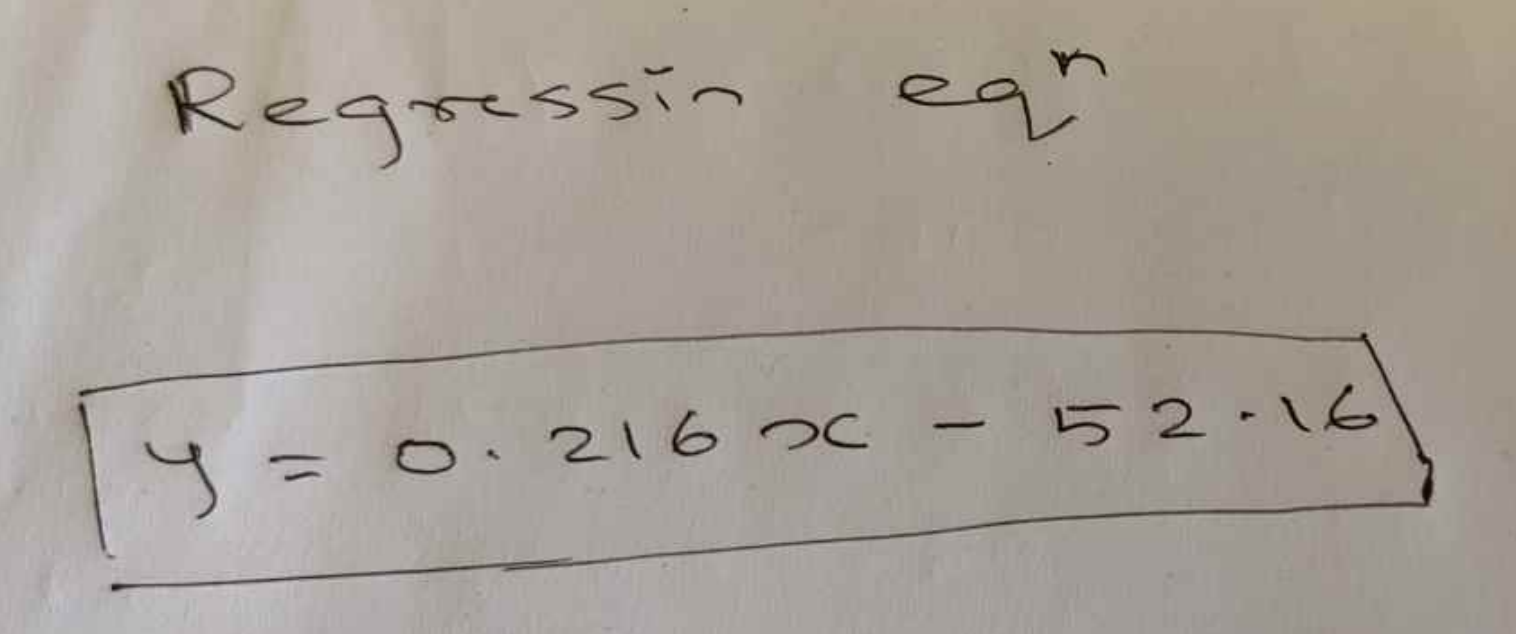 Regressin eqn
y = 0.216x - 52.16